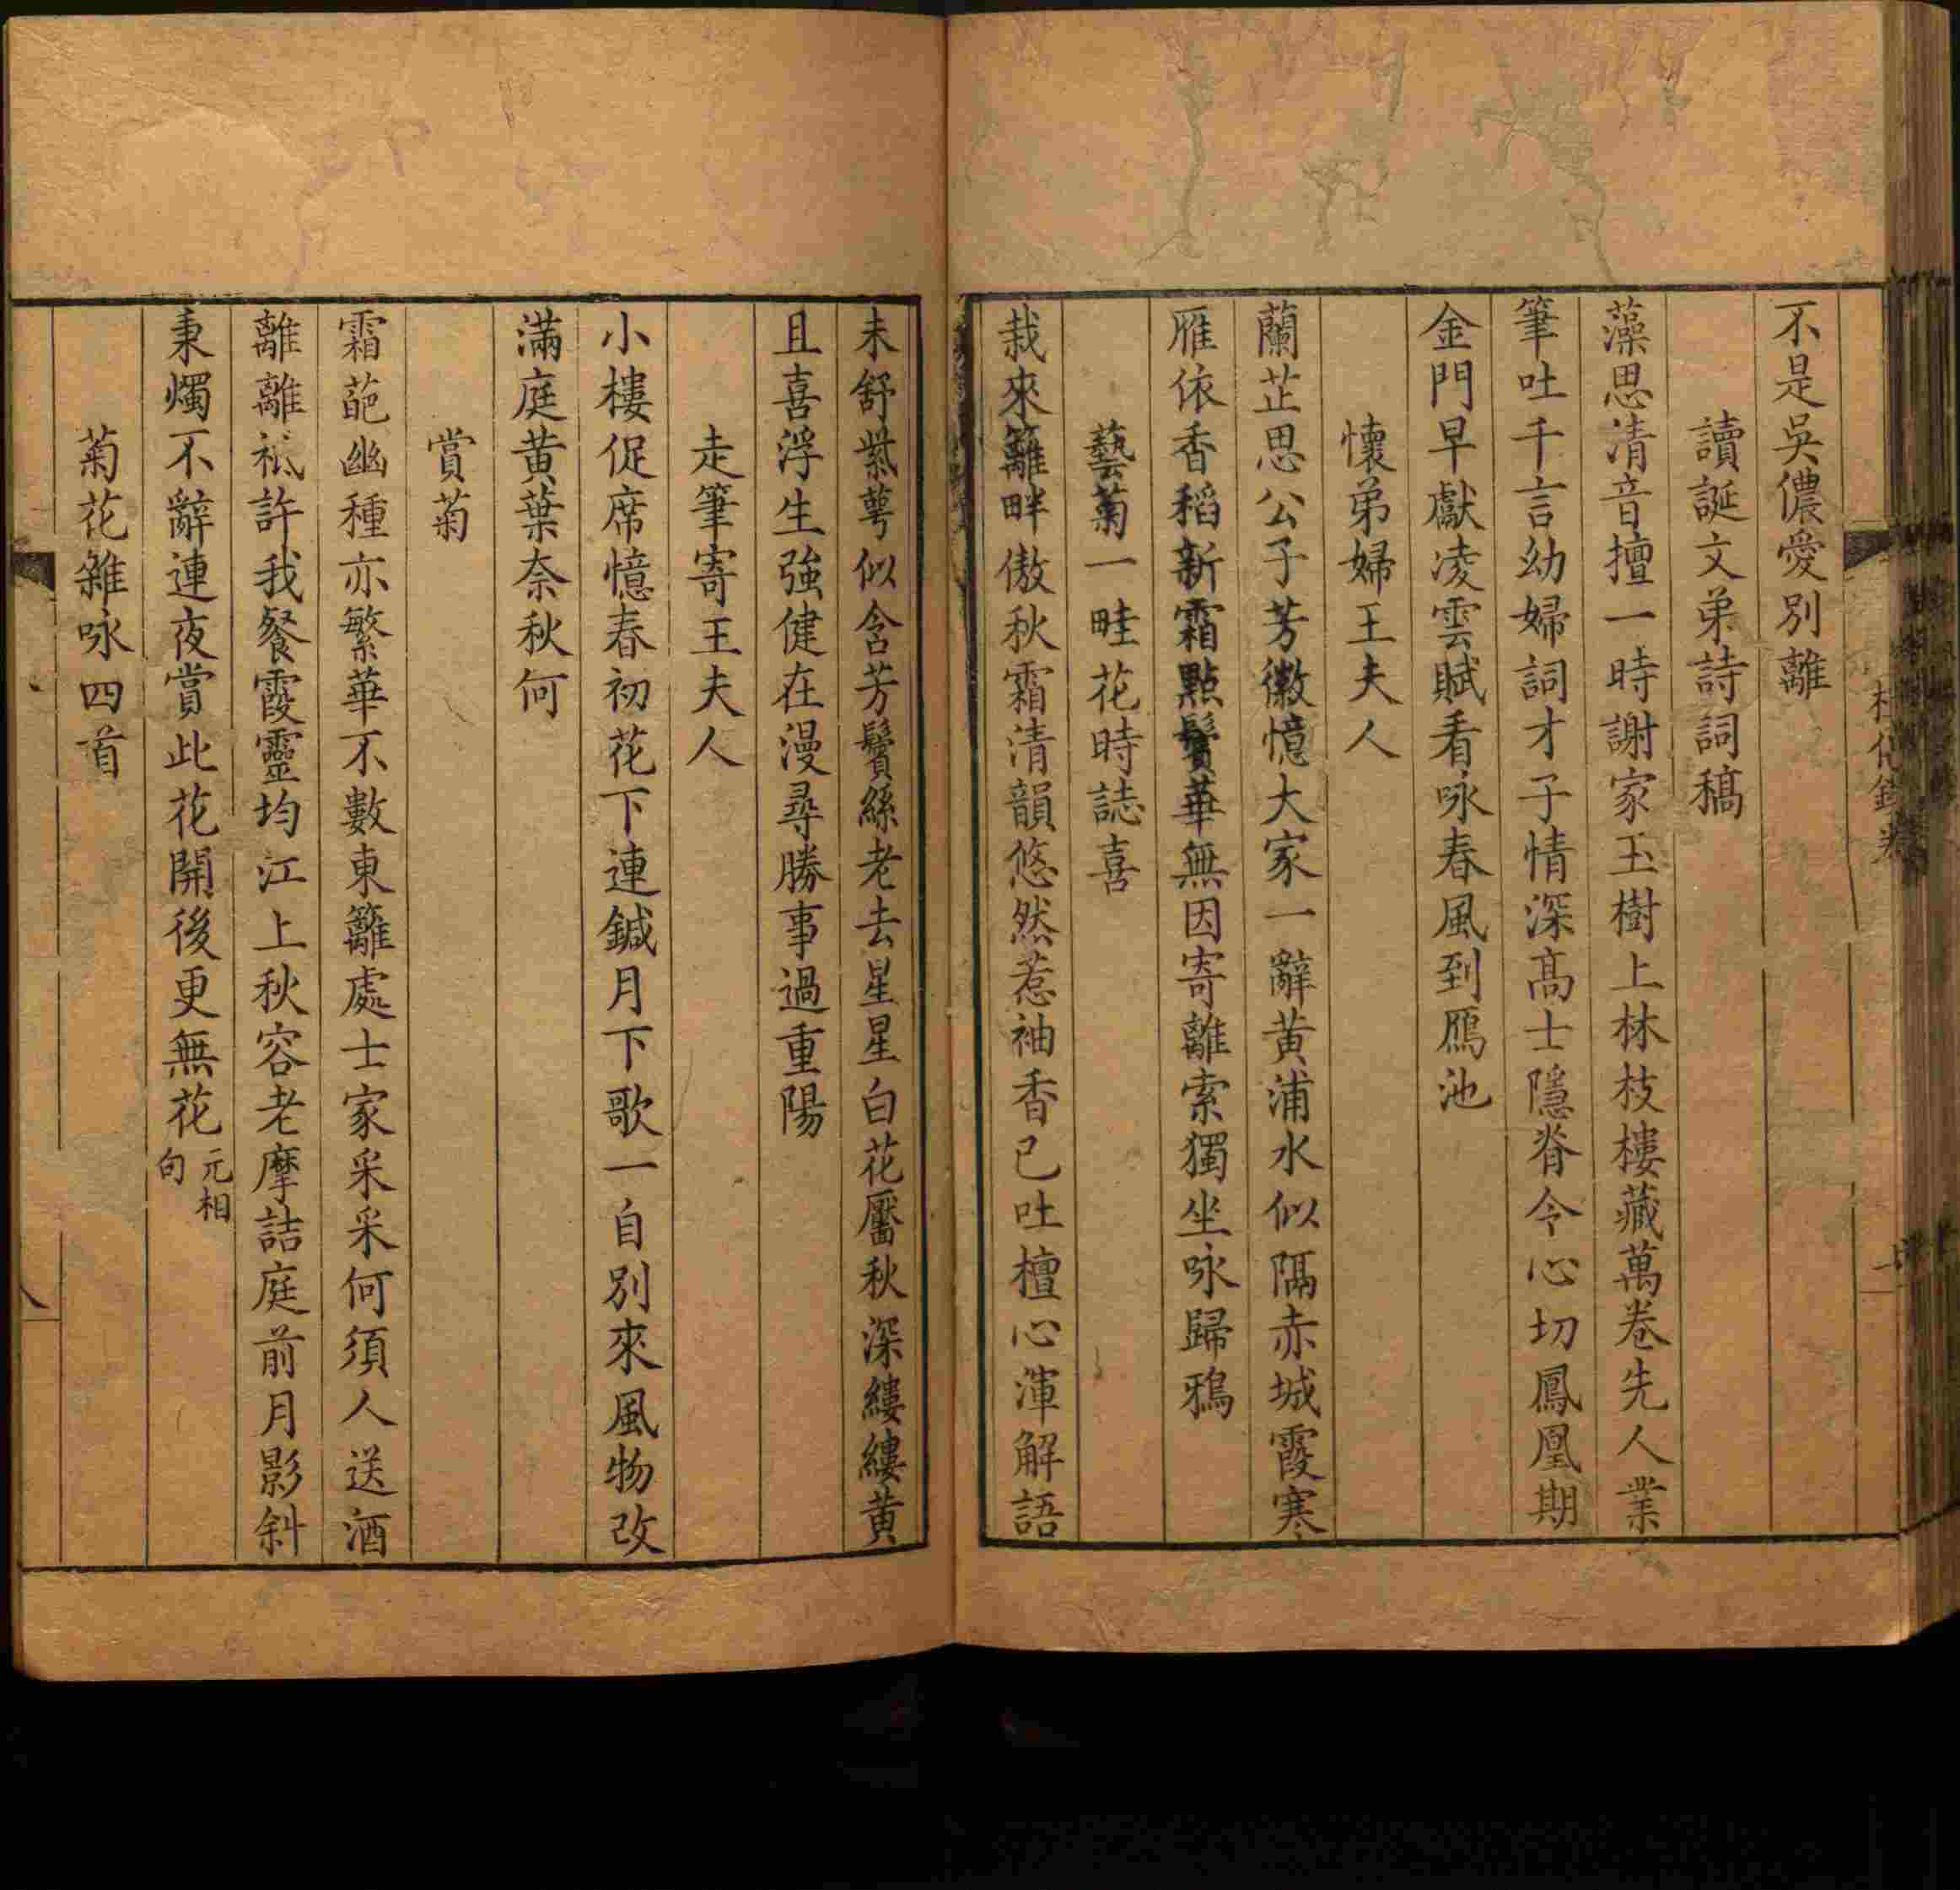 不是吳儂愛別離
讀誕文弟詩詞稿
藻思清音擅一時謝家玉樹上林枝樓藏萬卷先人業
筆吐千言幼婦詞才子情深髙士隱脊令心切鳳凰期
金門早獻凌雲賦看咏春風到鴈池
懷弟婦王夫人
蘭芷思公子芳徽憶大家一辭黃浦水似隔赤城霞寒
雁依香稻新霜點鬢華無因寄離索獨坐咏歸鴉
藝菊一畦花時誌喜
栽來籬畔傲秋霜清韻悠然惹袖香已吐檀心渾解語
未舒紫萼似含芳鬢絲老去星星白花靨秋深縷縷黃
且喜浮生強健在漫尋勝事過重陽
走筆寄王夫人
小樓促席憶春初花下連鍼月下歌一自別來風物改
滿庭黃葉奈秋何
賞菊
霜葩幽種亦繁華不數東籬處士家采采何須人送酒
離離祗許我餐霞靈均江上秋容老摩詰庭前月影斜
秉燭不辭連夜賞此花開後更無花元相句
菊花雜咏四首